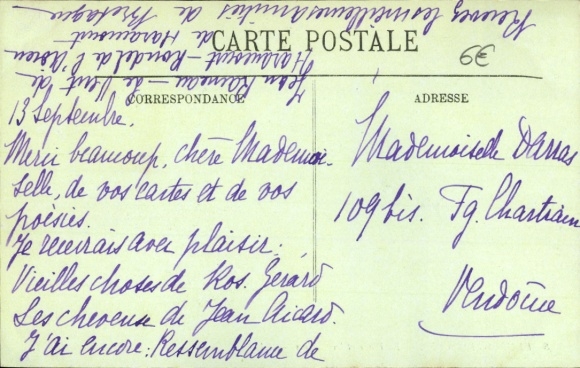 CARTE POSTALE
6€
CORRESPONDANCE
ADRESSE
13 Septembre.
Merci beaucoup, chère Mademoi-
selle, de vos cartes et de vos
poésies.
Je recevrais avec plaisir:
Vieilles choses de Ros. Gérard
Les cheveux de Jean Aicard.
J'ai encore: Ressemblance de
Jean Rameau - le Vent de
Haraucourt - Rondel de l'Adieu
de Haraucourt
Recevez les meilleures amitiés de Bretagne
Mademoiselle Darras
109 bis. Fg. Chartrain
Vendôme